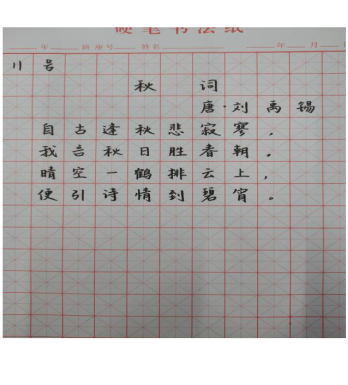 硬笔书法纸
年 班 座号 姓名 年 月 日
11号
秋词
唐·刘禹锡
自古逢秋悲寂寥，
我言秋日胜春朝。
晴空一鹤排云上，
便引诗情到碧宵。